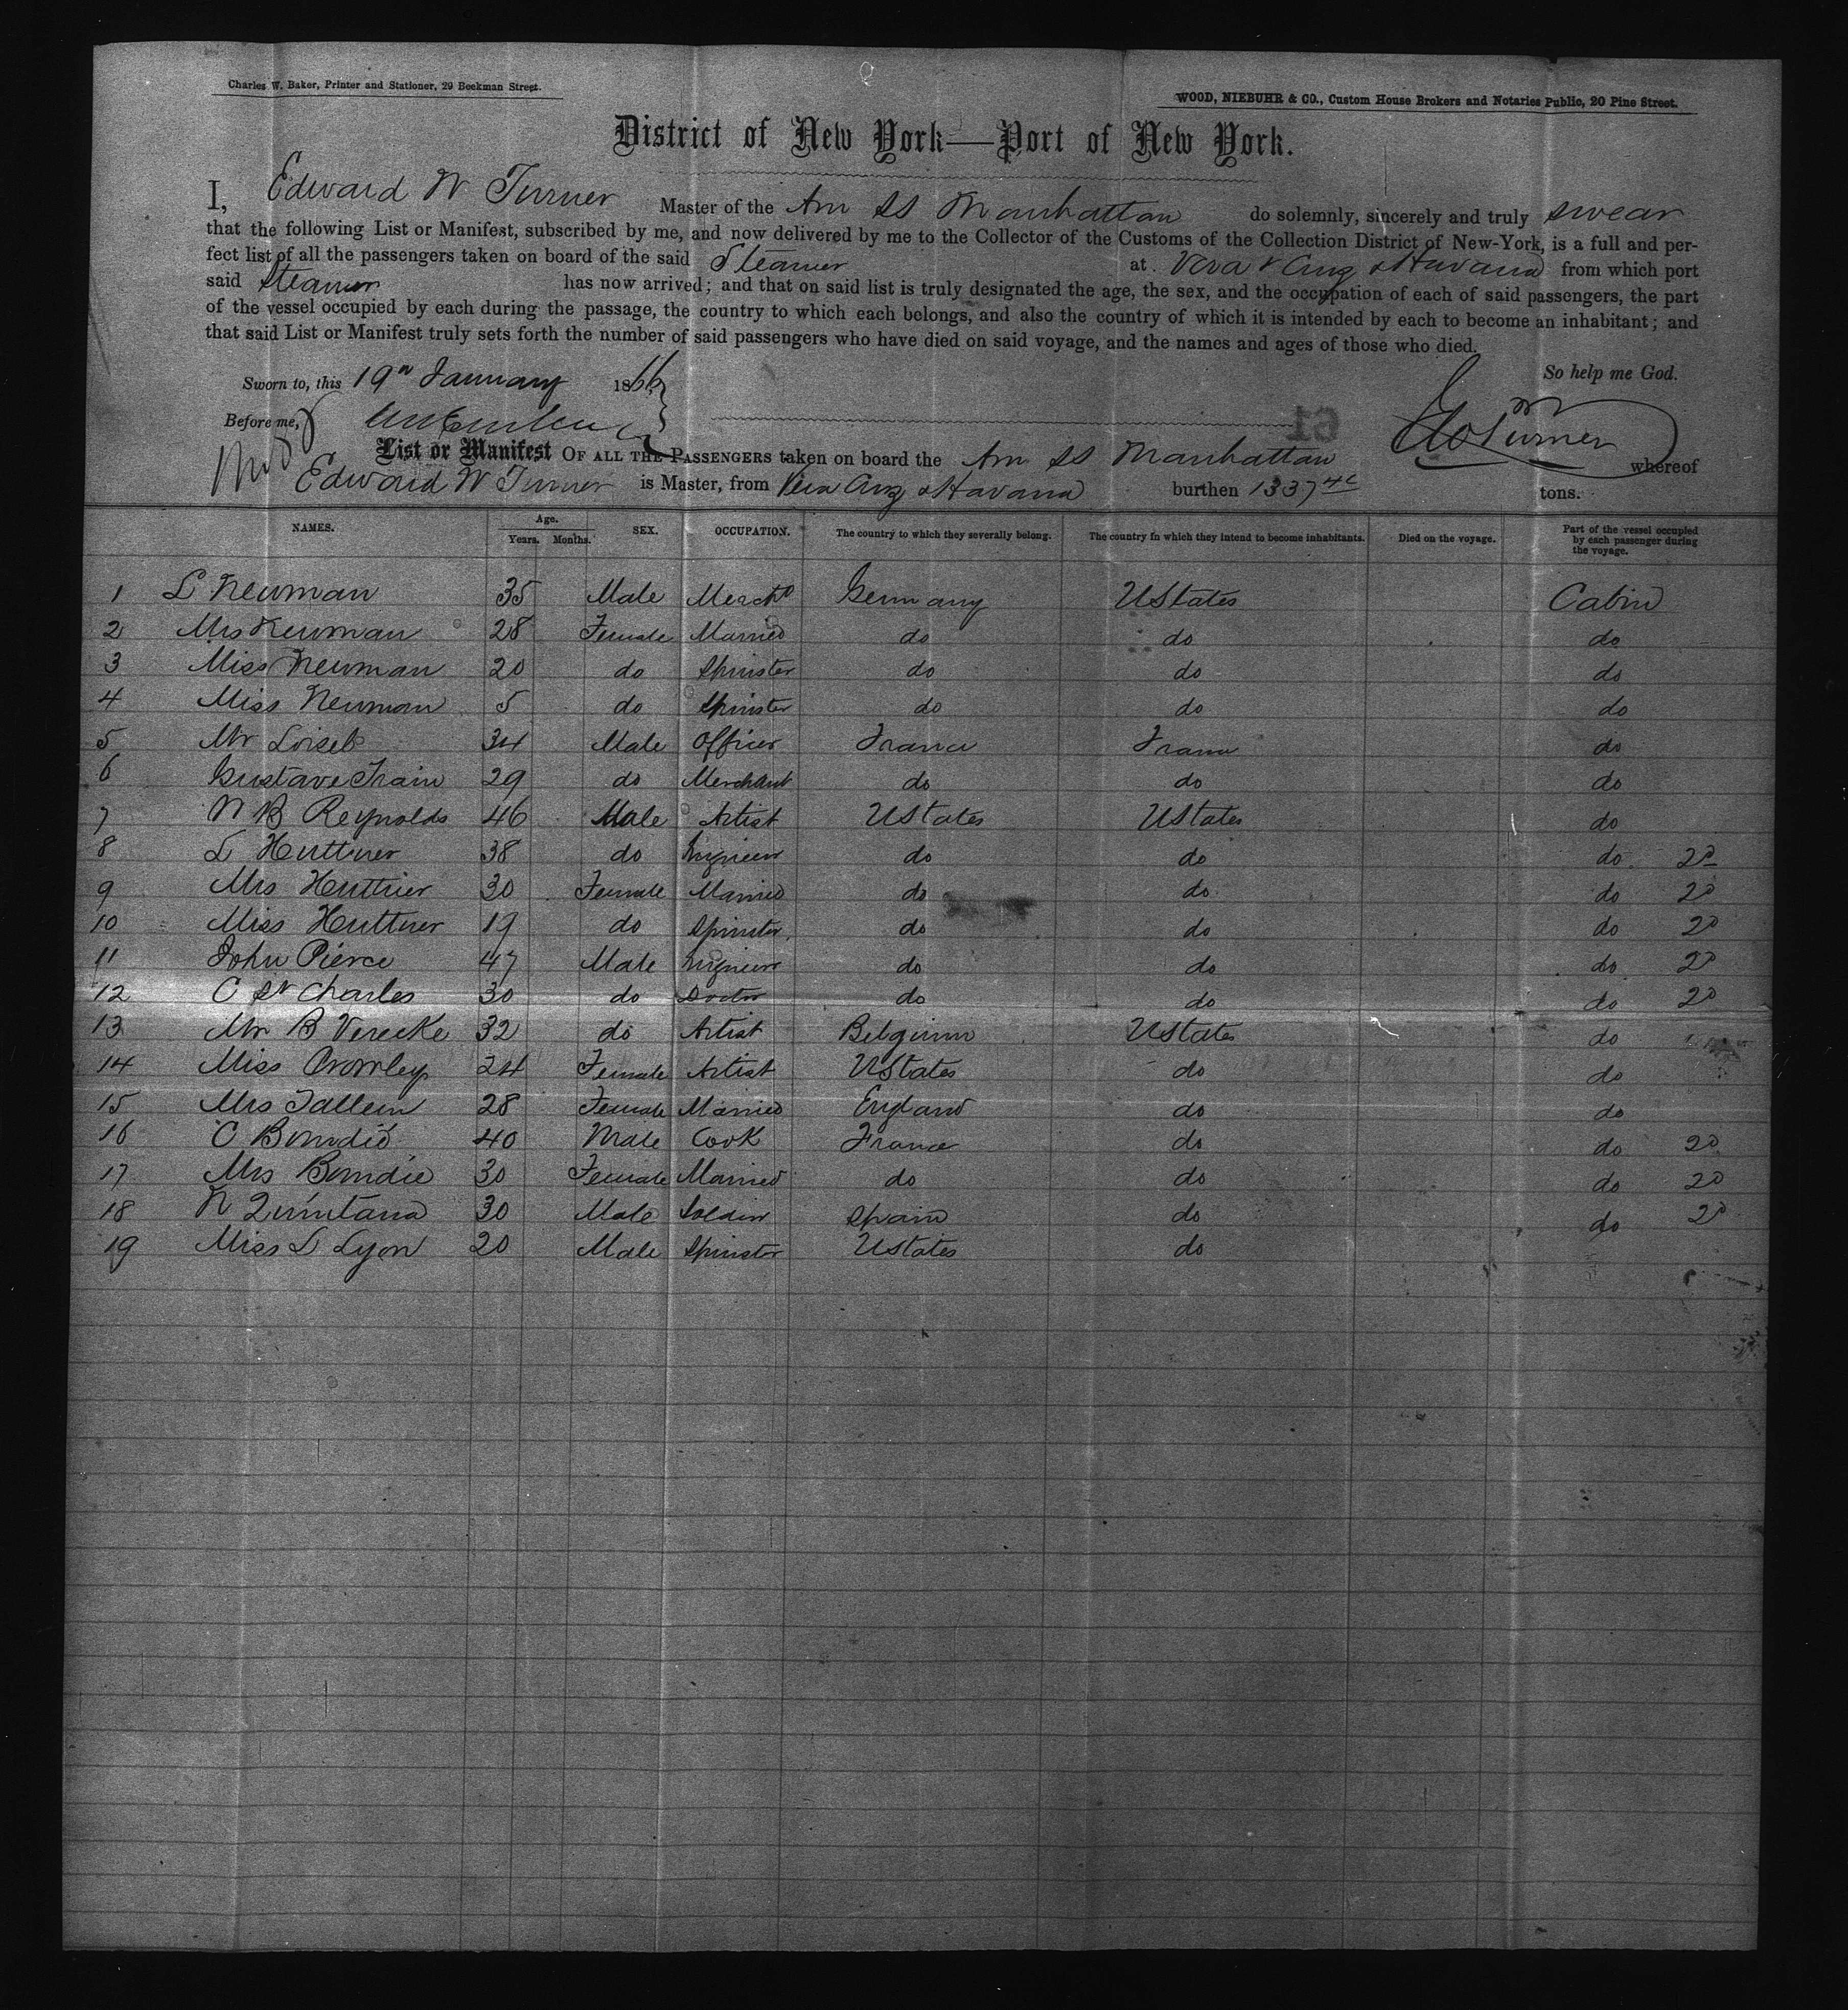 Charles W. Baker, Printer and Stationer, 29 Beekman Street.
WOOD, NIEBUHR & CO., Custom House Brokers and Notaries Public, 20 Pine Street.
District of New York—Port of New York.
I, Edward W Turner Master of the Am SS Manhattan do solemnly, sincerely and truly swear
that the following List or Manifest, subscribed by me, and now delivered by me to the Collector of the Customs of the Collection District of New-York, is a full and per-
fect list of all the passengers taken on board of the said Steamer at Vera Cruz & Havana from which port
said Steamer has now arrived; and that on said list is truly designated the age, the sex, and the occupation of each of said passengers, the part
of the vessel occupied by each during the passage, the country to which each belongs, and also the country of which it is intended by each to become an inhabitant; and
that said List or Manifest truly sets forth the number of said passengers who have died on said voyage, and the names and ages of those who died.
So help me God.
Sworn to, this 19th January 1866
Before me,
61
EW Turner
List or Manifest OF ALL THE PASSENGERS taken on board the Am SS Manhattan whereof
Edward W Turner is Master, from Vera Cruz & Havana burthen 1337 tons.
NAMES. Age. Years. Months. SEX. OCCUPATION. The country to which they severally belong. The country in which they intend to become inhabitants. Died on the voyage. Part of the vessel occupied by each passenger during the voyage.
1 L Newman 35 Male Mercht Germany UStates Cabin
2 Mrs Newman 28 Female Married do do do
3 Miss Newman 20 do Spinster do do do
4 Miss Newman 5 do Spinster do do do
5 Mr Loisel 34 Male Officer France France do
6 Gustave Train 29 do Merchant do do do
7 N B Reynolds 46 Male Artist UStates UStates do
8 L Huttner 38 do Engineer do do do 2d
9 Mrs Huttner 30 Female Married do do do 2d
10 Miss Huttner 19 do Spinster do do do 2d
11 John Pierce 47 Male Engineer do do do 2d
12 C St Charles 30 do Doctor do do do 2d
13 Mr B Verecke 32 do Artist Belgium UStates do
14 Miss Cromley 24 Female Artist UStates do do
15 Mrs Tallein 28 Female Married England do do
16 C Bondié 40 Male Cook France do do 2d
17 Mrs Bondie 30 Female Married do do do 2d
18 R Quintana 30 Male Soldier Spain do do 2d
19 Miss L Lyon 20 Male Spinster UStates do